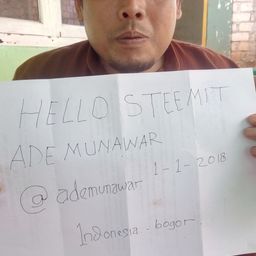 HELLO STEEMIT
ADE MUNAWAR
@ademunawar 1-1-2018
Indonesia - bogor.